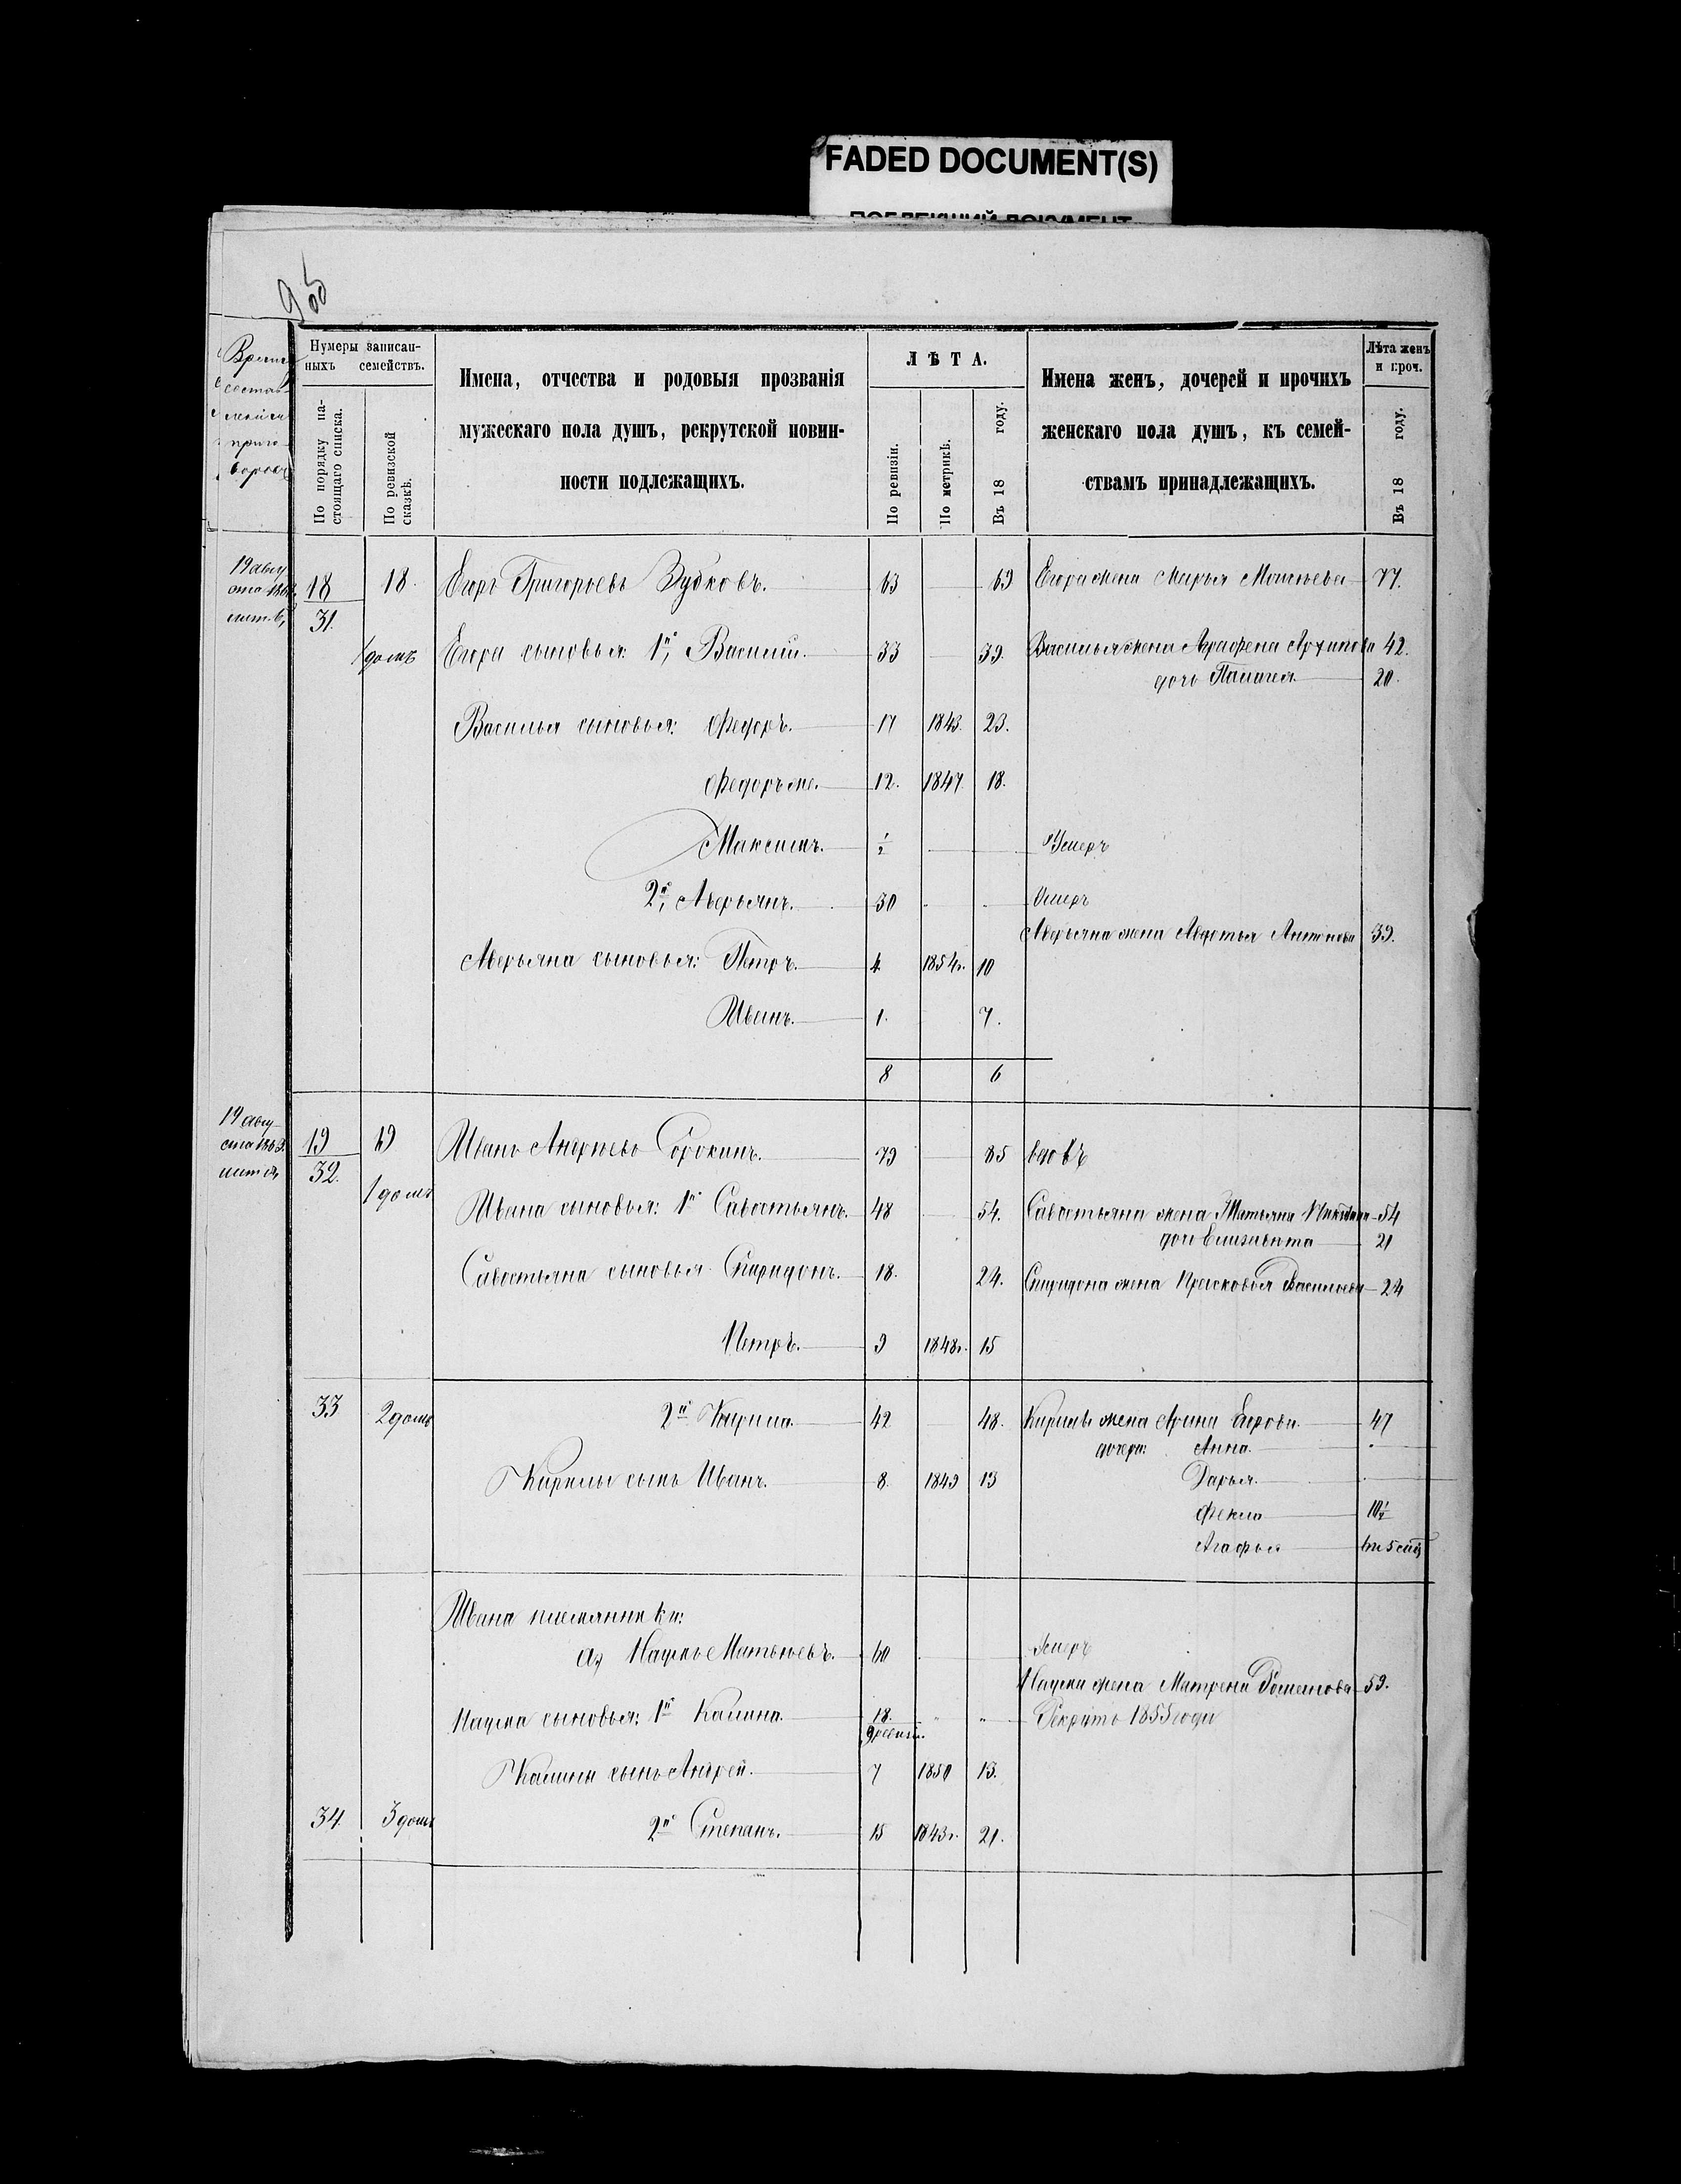 FADED DOCUMENT(S)
ПОБЛЕКШИЙ ДОКУМЕНТ
Время
состав-
ленія
приго-
воровъ
Нумеры записан-
ныхъ семействъ.
По порядку на-
стоящаго списка.
По ревизской
сказкѣ.
Имена, отчества и родовыя прозванія
мужескаго пола душъ, рекрутской повин-
ности подлежащихъ.
ЛѢТА.
По ревизіи.
По метрикѣ.
Въ 18 году.
Имена женъ, дочерей и прочихъ
женскаго пола душъ, къ семей-
ствамъ принадлежащихъ.
Лѣта женъ
и проч.
Въ 18 году.
19 авгу
ста
18 18. Егоръ Григорьевъ Зубковъ. 63 69 Егора жена Марья 77.
31.
1 домъ Егора сыновья: 1й, Василій. 33 39. Василья жена Аграфена Архипова 42.
дочь Палагея 20.
Василья сыновья: Федоръ. 17 1843. 23.
Федоръ же. 12. 1847. 18.
Максимъ. 1/2 Умеръ
2й, Аверьянъ. 30 Умеръ
Аверьяна жена Авдотья Антонова 39.
Аверьяна сыновья: Петръ. 4. 1854г. 10
Иванъ. 1. 7.
8 6
19 авгу-
ста
19 19 Иванъ Андреевъ Сорокинъ. 79 85 вдовъ
32.
1 домъ Ивана сыновья: 1й Савостьянъ. 48 54. Савостьяна жена Татьяна 54
дочь Елизавета 21
Савостьяна сыновья Спиридонъ. 18. 24. Спиридона жена Прасковья Васильева 24
Петръ. 9 1848г. 15
33 2 домъ 2й Кирила. 42 48. Кирилы жена Арина Егорова 47
дочери: Анна.
Кирилы сынъ Иванъ. 8. 1849 13 Дарья.
Фекла 10 1/2
Агафья
Ивана племянники:
а) Наумъ Матвѣевъ. 60 Умеръ
Наума жена Матрена 59.
Наума сыновья: 1й Калина. 18. " " Рекрутъ 1855 года
9 ревизіи.
Калины сынъ Андрей. 7 1850 13.
34. 3 домъ 2й Степанъ. 15 1843г. 21.